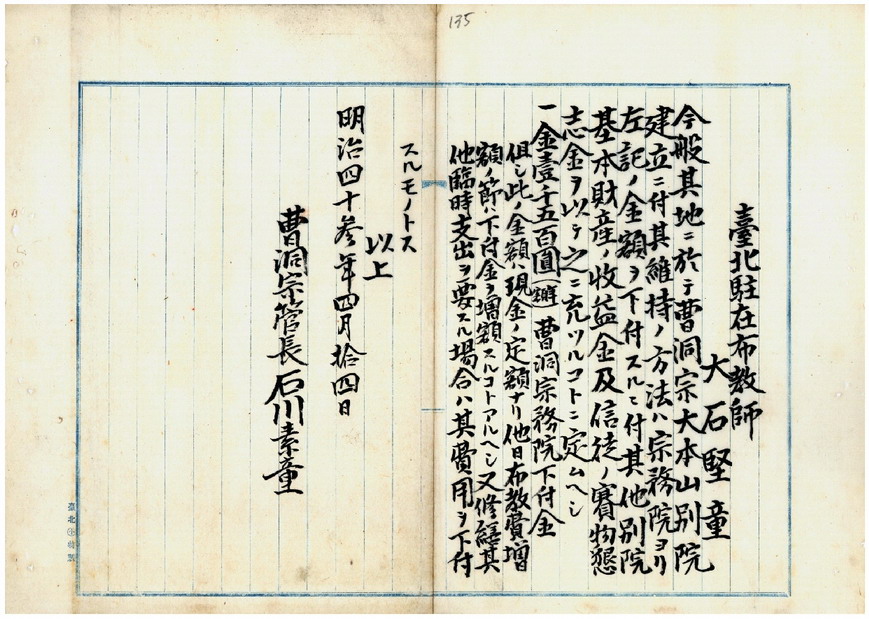 135
臺北駐在布教師
大石堅童
今般其地ニ於テ曹洞宗大本山別院
建立ニ付其維持ノ方法ハ宗務院ヨリ
左記ノ金額ヲ下付スルニ付其他別院
基本財産ノ收益金及信徒ノ賽物懇
志金ヲ以テ之ニ充ツルコトニ定ムヘシ
一金壹千五百圓 曹洞宗務院下付金
但シ此ノ金額ハ現金ノ定額ナリ他日布教費増
額ノ節ハ下付金ヲ増額スルコトアルヘシ又修繕其
他臨時支出ヲ要スル場合ハ其費用ヲ下付
スルモノトス
以上
明治四十参年四月拾四日
曹洞宗管長石川素童